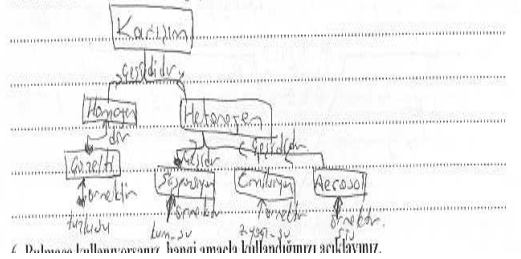 Karışım
çeşididir
Homojen Heterojen
dir çeşididir
Çözelti çeşidi
Süspansiyon Emülsiyon Aerosol
örnektir örnektir örnektir örnektir.
tuzlusu kum-su z.yağı-su sis
6. Bulmaca kullanıyorsanız, hangi amaçla kullandığınızı açıklayınız.